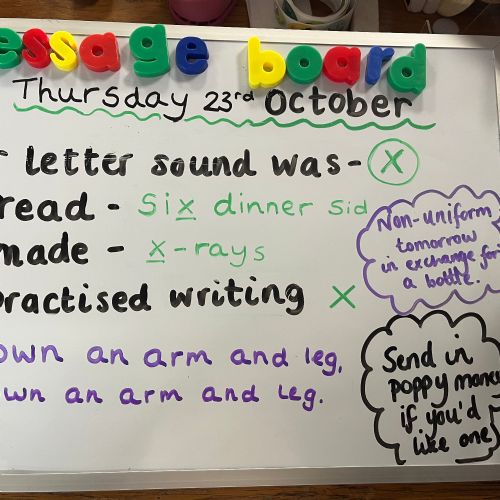 essage board
Thursday 23rd October
letter sound was- x
read - Six dinner Sid
made - x-rays
practised writing x
own an arm and leg,
wn an arm and leg.
Non-uniform
tomorrow
in exchange for
a bottle.
Send in
poppy money
if you'd
like one